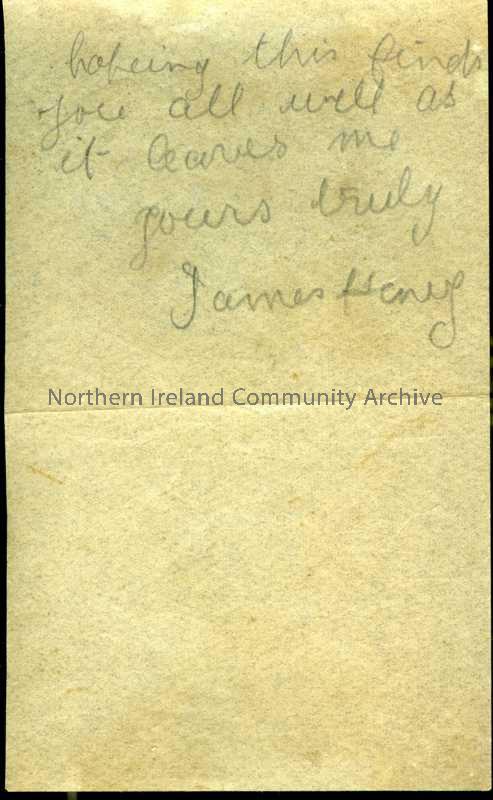 hopeing this finds
you all well as
it leaves me
yours truly
James Heney
Northern Ireland Community Archive